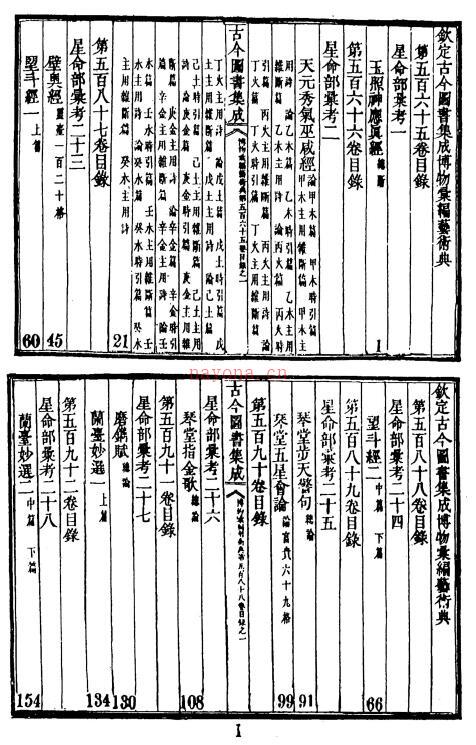 欽定古今圖書集成博物彙編藝術典
第五百六十五卷目錄
星命部彙考一
玉照神應眞經 總斷 1
第五百六十六卷目錄
星命部彙考二
天元秀氣巫咸經 論甲木篇 甲木時引篇
甲木主用維斷篇 甲木主
用詩 論乙木篇 乙木時引篇 乙木主用
維斷篇 乙木主用詩 論丙火篇 丙火時
引篇 丙火主用維斷篇 丙火主用詩 論
丁火篇 丁火時引篇 丁火主用維斷篇
古今圖書集成 博物彙編藝術典第五百六十五卷目錄之一
丁火主用詩 論戊土篇 戊土時引篇 戊
土主用維斷篇 戊土主用詩 論己土篇
己土時引篇 己土主用維斷篇 己土主用
詩 論庚金篇 庚金時引篇 庚金主用維
斷篇 庚金主用詩 論辛金篇 辛金時引
篇 辛金主用維斷篇 辛金主用詩 論壬
水篇 壬水時引篇 壬水主用維斷篇 壬
水主用詩 論癸水篇 癸水時引篇 癸水
主用維斷篇 癸水主用詩 21
第五百八十七卷目錄
星命部彙考二十三
壁奧經 靈臺一百二十格 45
望斗經一 上篇 60
欽定古今圖書集成博物彙編藝術典
第五百八十八卷目錄
星命部彙考二十四
望斗經二 中篇 下篇 66
第五百八十九卷目錄
星命部彙考二十五
琴堂步天警句 總論 91
琴堂五星會論 論富貴六十九格 99
第五百九十卷目錄
古今圖書集成 博物彙編藝術典第五百八十八卷目錄之一
星命部彙考二十六
琴堂指金歌 總論 108
第五百九十一卷目錄
星命部彙考二十七
磨鐫賦 總論 130
蘭臺妙選一 上篇 134
第五百九十二卷目錄
星命部彙考二十八
蘭臺妙選二 中篇 下篇 154
1
nayona.cn